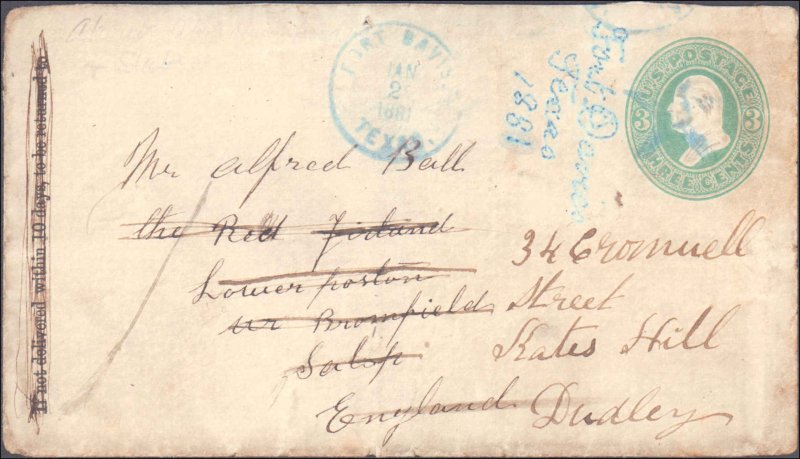 If not delivered within 10 days, to be returned to
FORT DAVIS
JAN
2
1881
TEXAS.
Fort Davis
Texas
1881
U.S. POSTAGE
3 3
THREE CENTS
Mr Alfred Ball
the Red
Lowerposton
nr Bromfield
Salop
England
34 Cromwell
Street
Kates Hill
Dudley